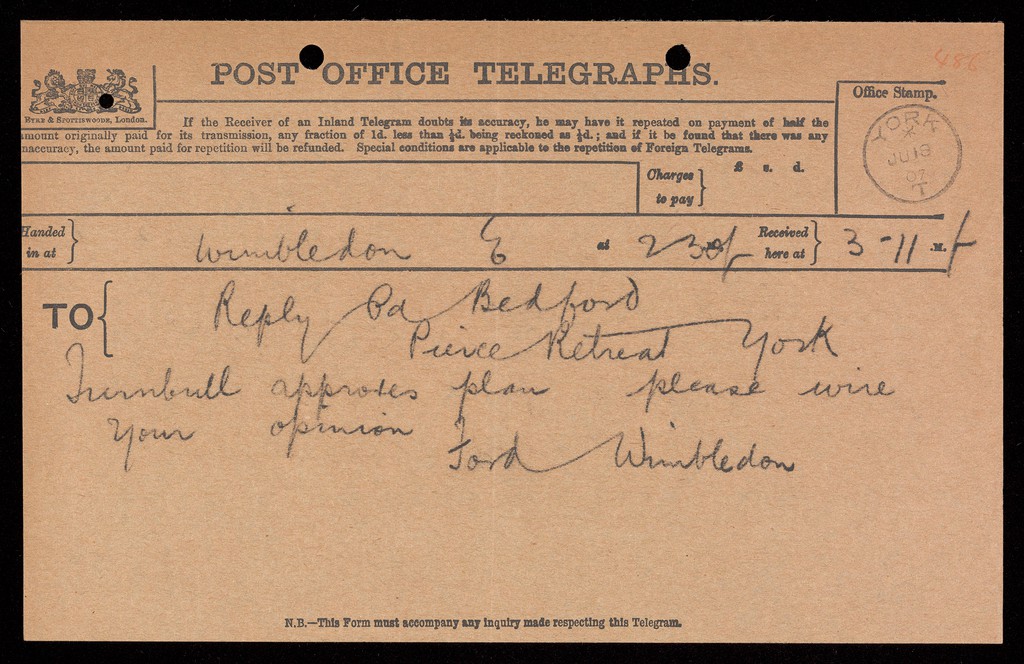 486
POST OFFICE TELEGRAPHS.
EYRE & SPOTTISWOODE, London.
If the Receiver of an Inland Telegram doubts its accuracy, he may have it repeated on payment of half the
amount originally paid for its transmission, any fraction of 1d. less than ½d. being reckoned as ½d.; and if it be found that there was any
naccuracy, the amount paid for repetition will be refunded. Special conditions are applicable to the repetition of Foreign Telegrams.
Office Stamp.
YORK
X
JU 18
07
T
Charges to pay } £ s. d.
Handed in at } Wimbledon E at 2 30 Received here at } 3-11 M.
TO { Reply Pd Bedford
Pierce Retreat York
Turnbull approves plan please wire
your opinion
Ford Wimbledon
N.B.—This Form must accompany any inquiry made respecting this Telegram.